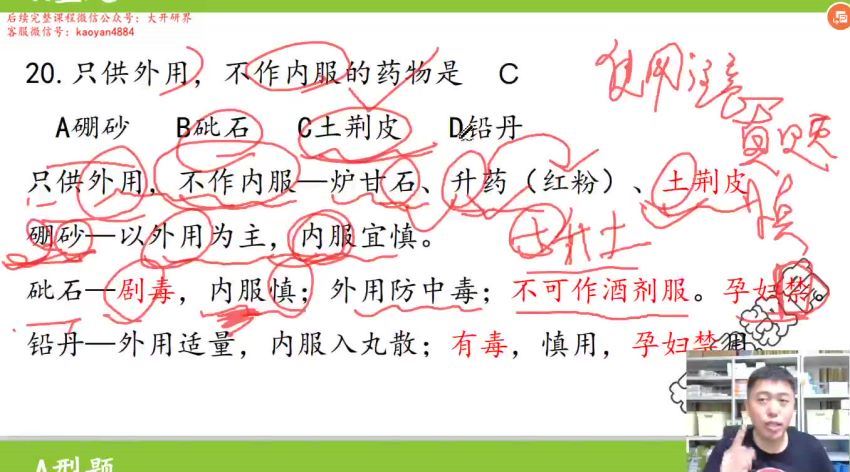 后续完整课程微信公众号：大开研界
客服微信号：kaoyan4884
20.只供外用，不作内服的药物是 C
A硼砂 B砒石 C土荆皮 D铅丹
使用注意
真题
只供外用，不作内服—炉甘石、升药（红粉）、土荆皮
慎
硼砂—以外用为主，内服宜慎。
砒石—剧毒，内服慎；外用防中毒；不可作酒剂服。孕妇禁
铅丹—外用适量，内服入丸散；有毒，慎用，孕妇禁用
A型题